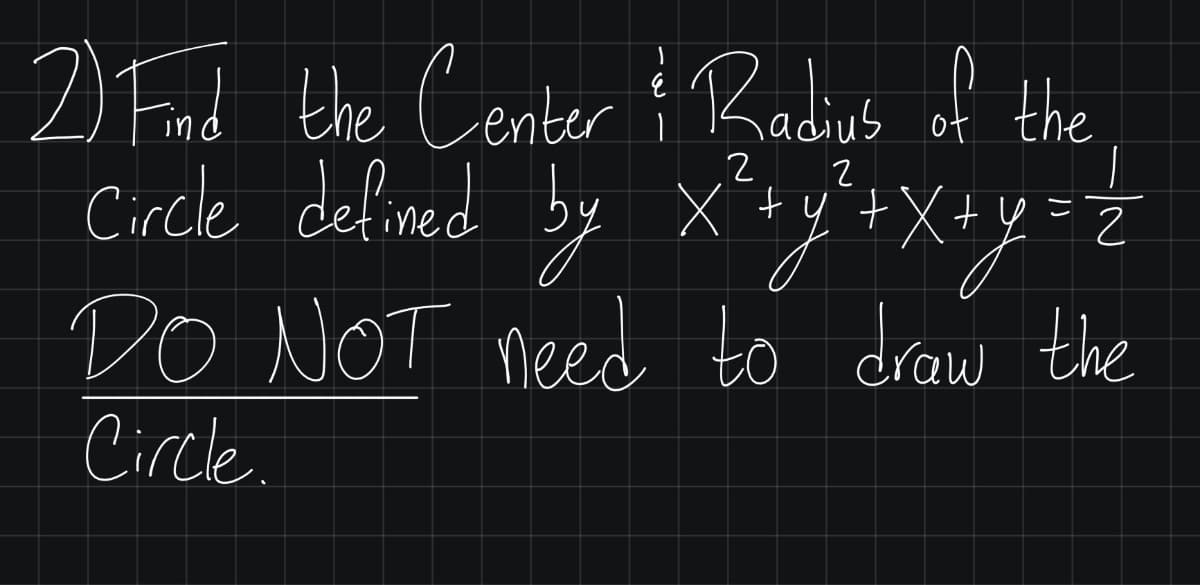 2) Find the Center & Radius of the
Circle defined by x²+y²+x+y=1/2
DO NOT need to draw the
Circle.